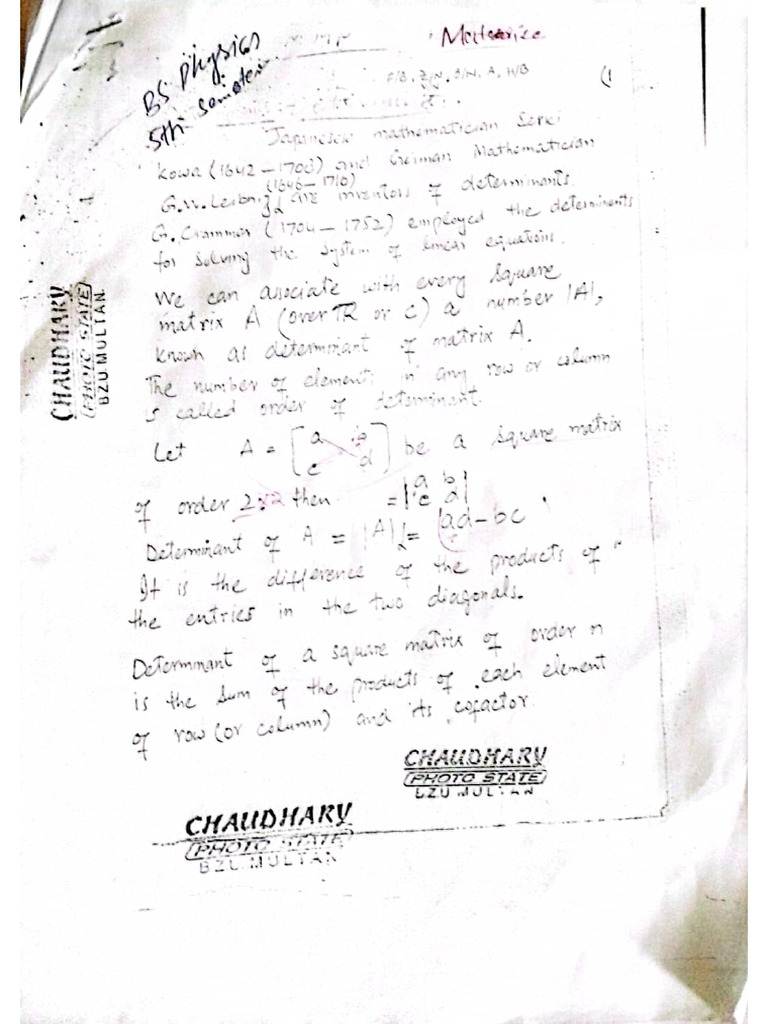 BS Physics
5th Semister
F/B, Z/N, S/N, A, H/B
(1
Japanesse mathematician Seki
Kowa (1642 – 1708) and German Mathematician
(1646 – 1716)
G.W. Leibniz are inventors of determinants.
G. Crammer (1704 – 1752) employed the determinents
for solving the system of linear equations.
We can asociate with every square
matrix A (over R or C) a number |A|,
known as determinant of matrix A.
The number of elements in any row or column
is called order of determinant.
Let A = [a b
c d] be a square matrix
of order 2x2 then = |a b
c d|
Determinant of A = |A| = ad – bc
It is the difference of the products of
the entries in the two diagonals.
Determinant of a square matrix of order n
is the sum of the products of each element
of row (or column) and its cofactor.
CHAUDHARY
(PHOTO STATE)
BZU MULTAN
CHAUDHARY
(PHOTO STATE)
BZU MULTAN
CHAUDHARY
(PHOTO STATE)
BZU MULTAN